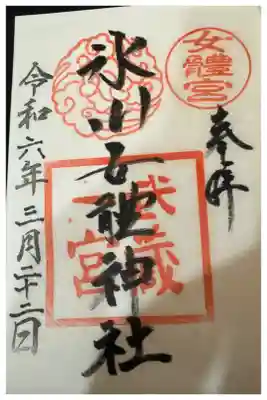 女體宮
奉拝
武蔵
一宮
氷川女體神社
令和六年三月二十二日